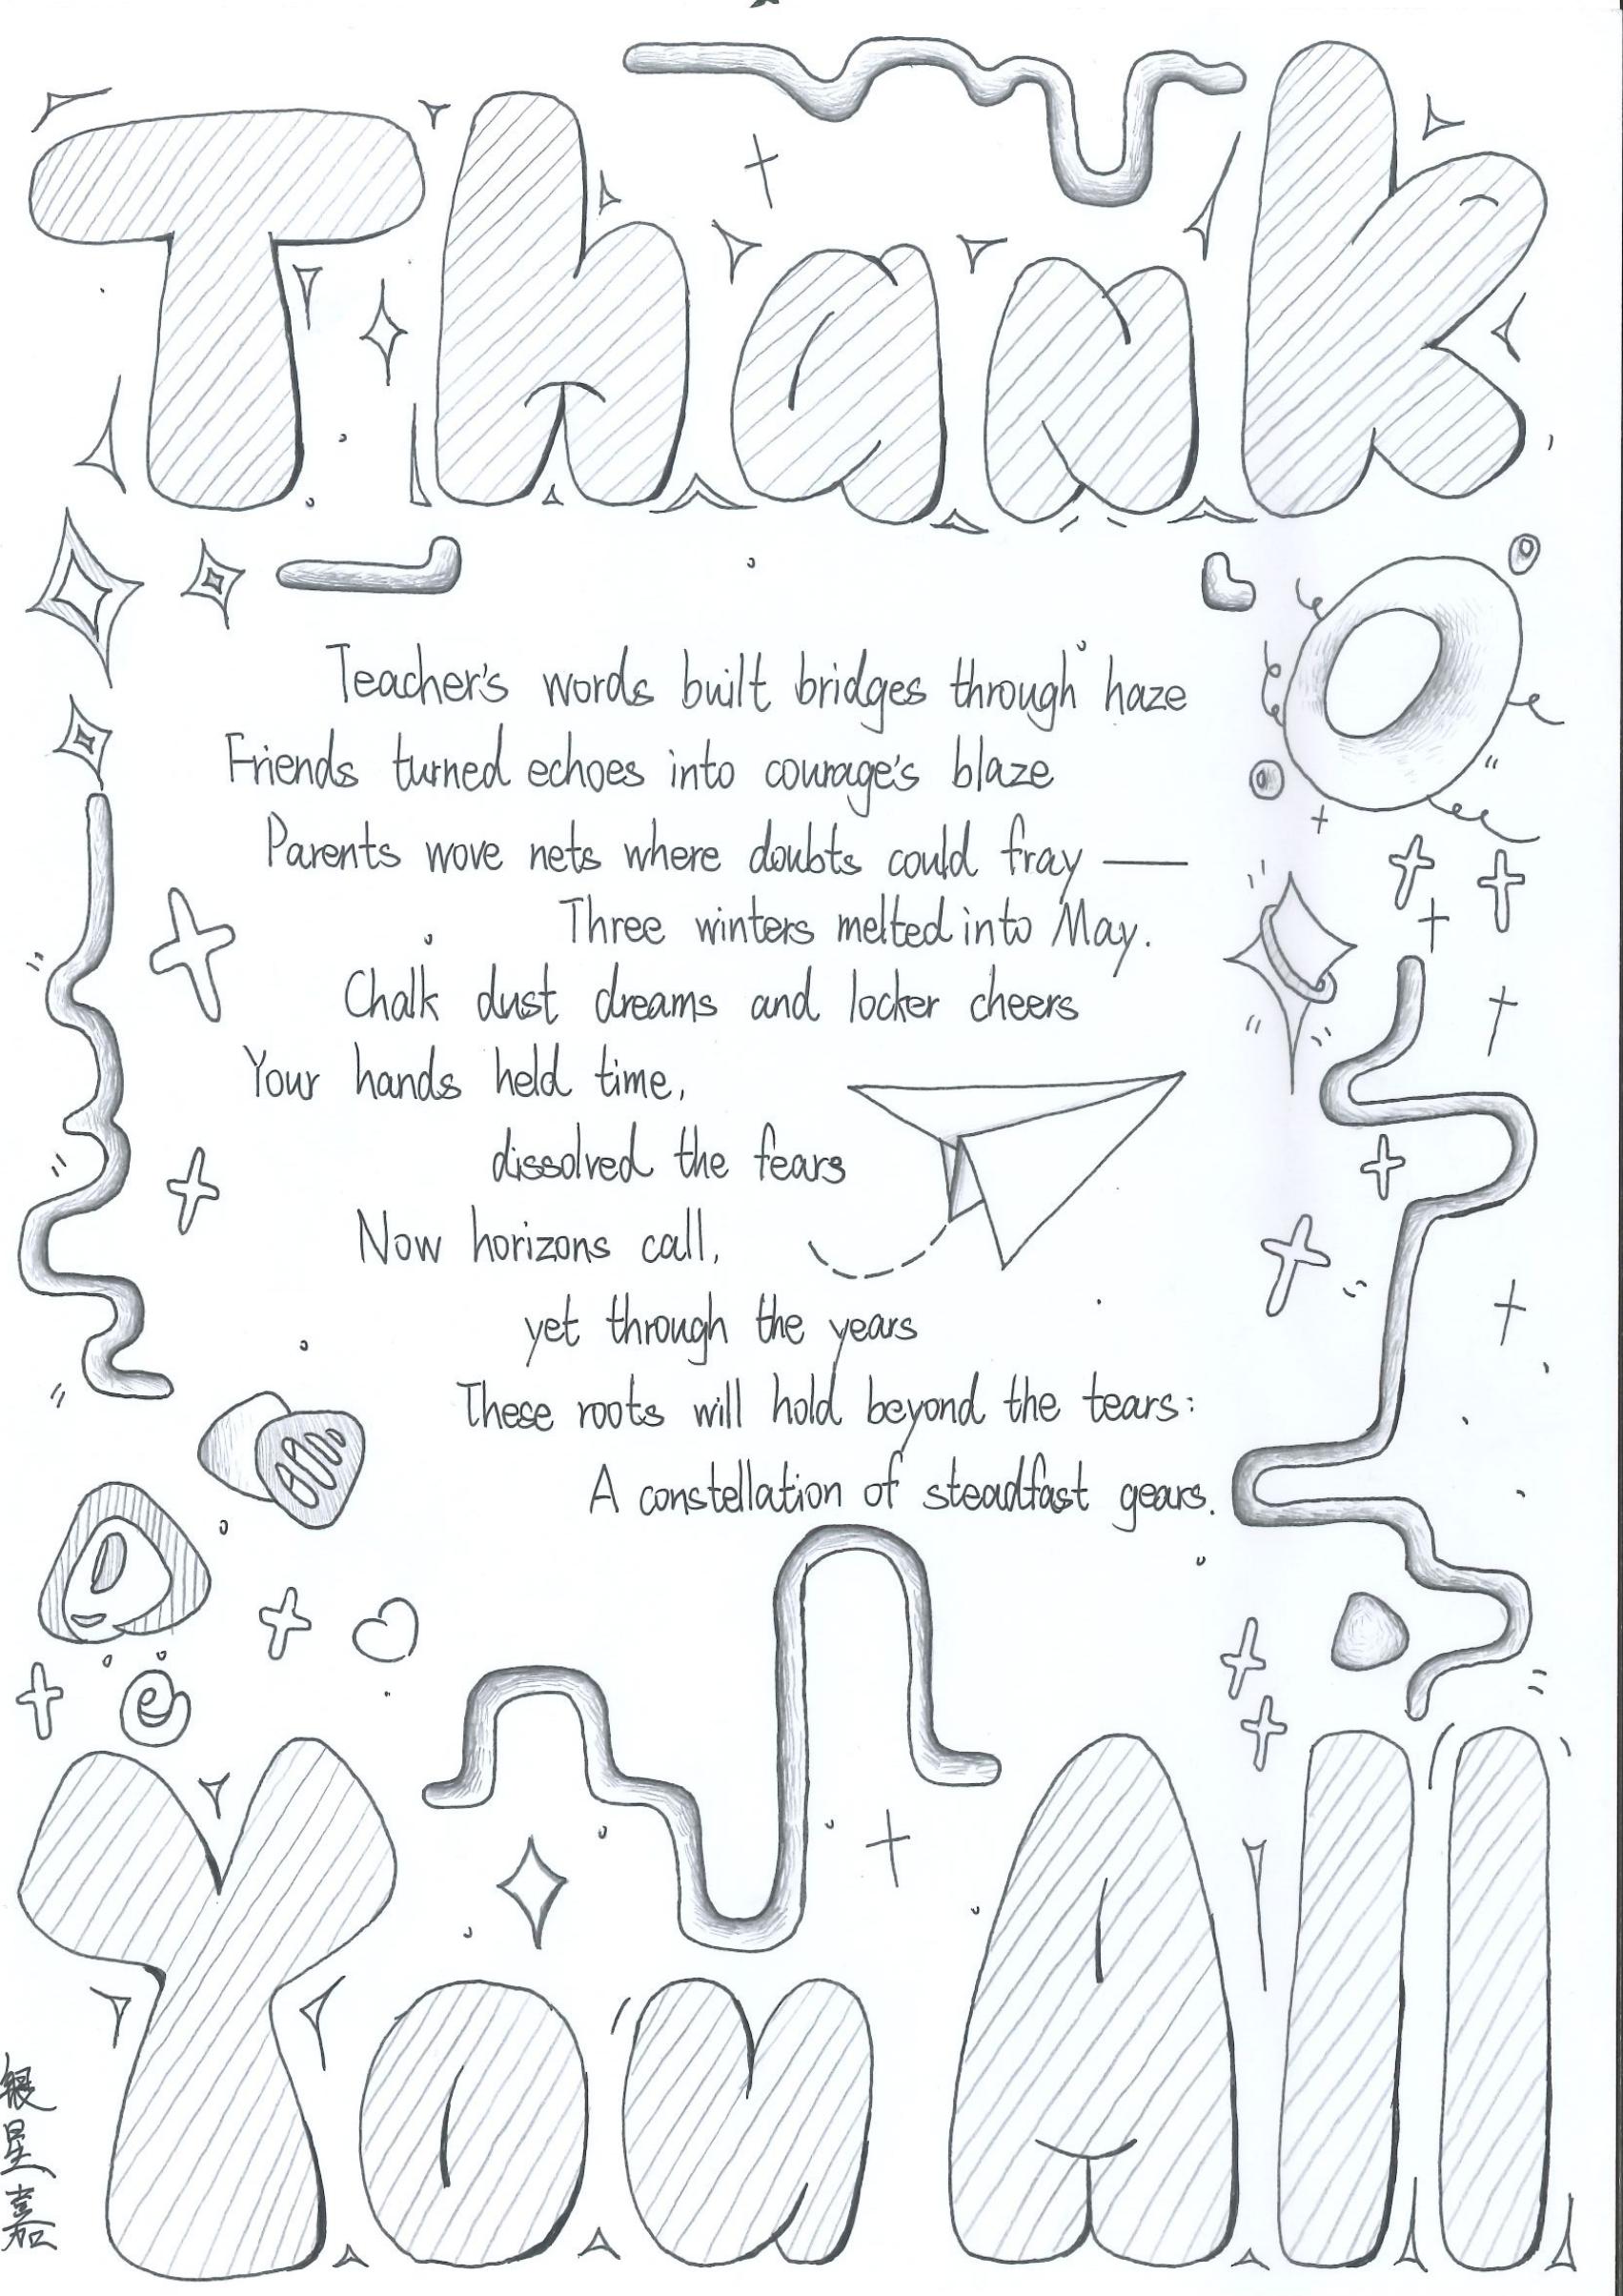 Thank
Teacher's words built bridges through haze
Friends turned echoes into courage's blaze
Parents wove nets where doubts could fray ——
Three winters melted into May.
Chalk dust dreams and locker cheers
Your hands held time,
dissolved the fears
Now horizons call,
yet through the years
These roots will hold beyond the tears:
A constellation of steadfast gears.
You All
银星嘉